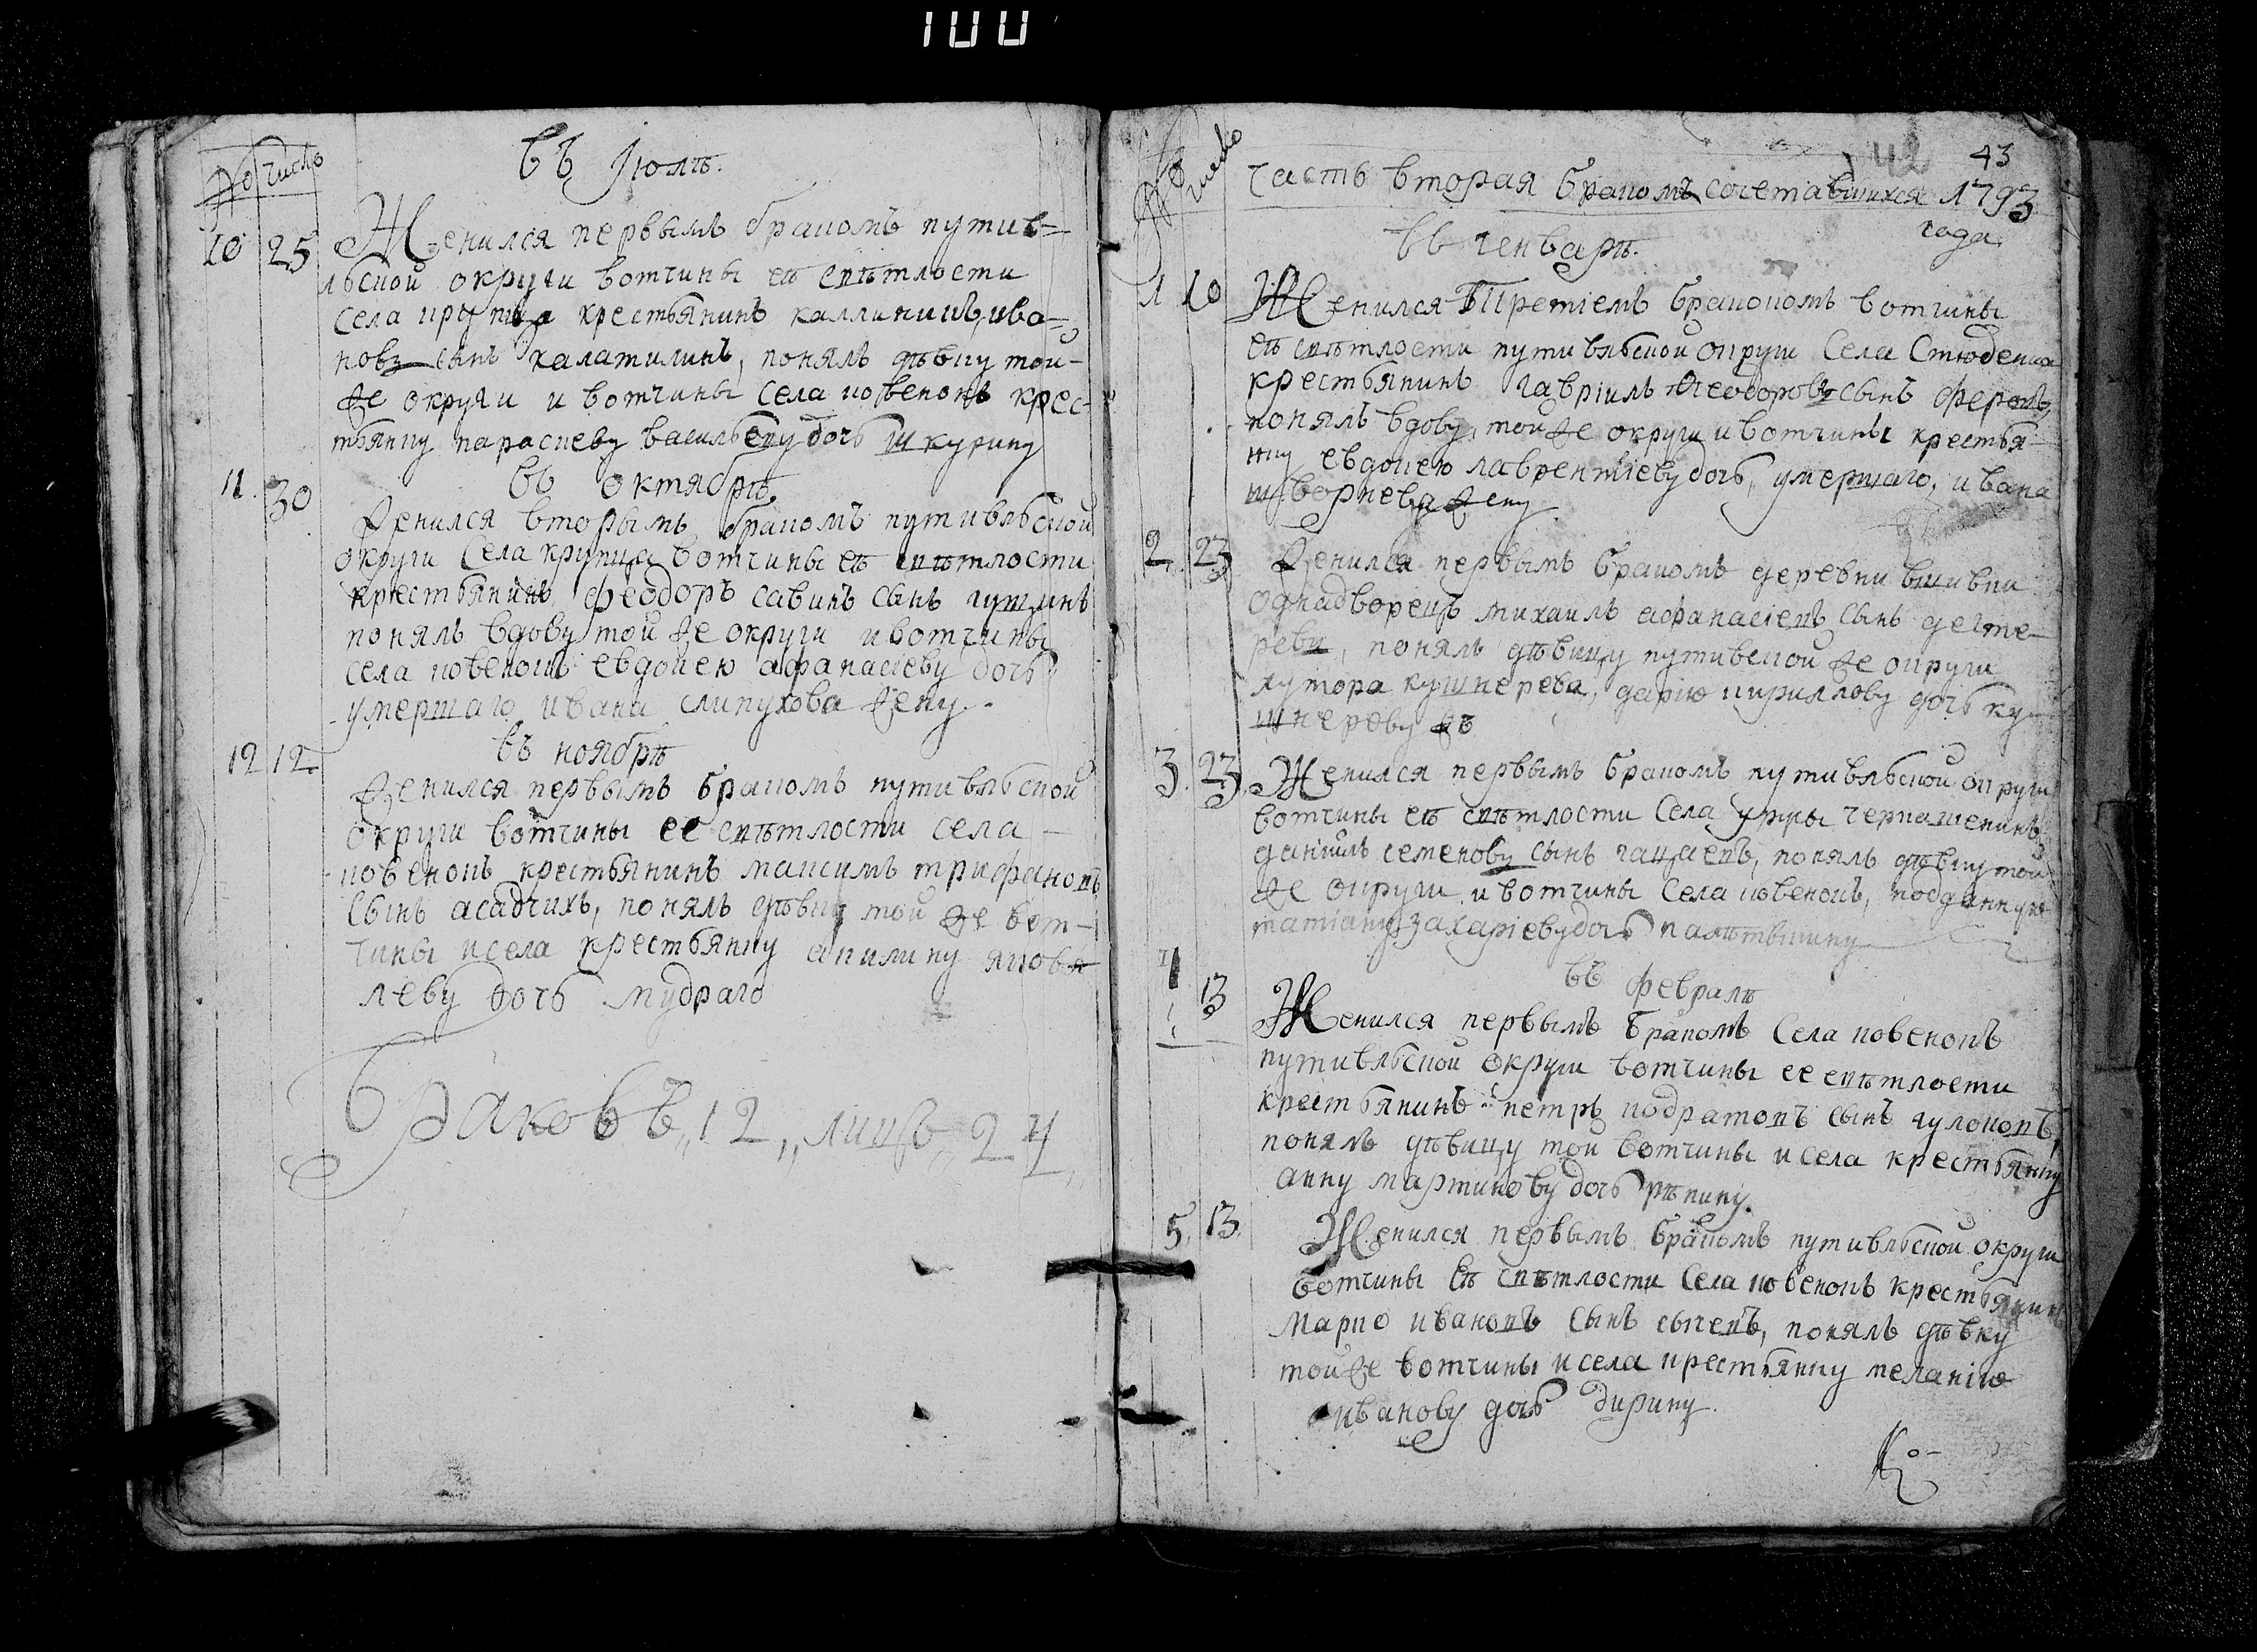 100
№ число
въ Іюлѣ.
10 25 Женился первымъ бракомъ путив=
льской округи вотчины еѣ свѣтлости
села крупца крестьянинъ каллиникъ ива=
новъ сынъ халатилинъ, понялъ дѣвку той-
же округи и вотчины села ковенокъ крес-
тьянку параскеву васильеву дочь шкурину
въ октябрѣ
11. 30 Женился вторымъ бракомъ путивльской
округи села крупца вотчины еѣ свѣтлости
крестьянинъ феодоръ савинъ сынъ гущинъ
понялъ вдову той же округи и вотчины
села ковенокъ евдокею афанасіеву дочь
умершаго ивана слипухова жену.
въ ноябрѣ
12 12. Женился первымъ бракомъ путивльской
округи вотчины ее свѣтлости села
ковенокъ крестьянинъ максимъ трифановъ
сынъ асадчихъ, понялъ дѣвку той же вот-
чины и села крестьянку акилину яков-
леву дочь мудраго
Браковъ „12„ лицъ „24„
43
№ число
часть вторая бракомъ сочетавшихся 1793
года
въ генварѣ.
1 10 Женился третіемъ бракомъ вотчины
еѣ свѣтлости путивльской округи села Стюденка
крестьянинъ гавріилъ феодоровъ сынъ
понялъ вдову, той же округи и вотчины крестья-
нку евдокею лаврентіеву дочь, умершаго, ивана
шворнева жену
2. 23 Женился первымъ бракомъ деревни вшивки
однадворецъ михаилъ афанасіевъ сынъ дегте-
ревъ, понялъ дѣвицу путивской же округи
хутора кушнерева, дарію кириллову дочь ку-
шнереву
3. 23. Женился первымъ бракомъ путивльской округи
вотчины еѣ свѣтлости села черкашенинъ
даніилъ семеновъ сынъ гацаевъ, понялъ дѣвку той
же округи и вотчины села ковенокъ, подданную
татіану захаріеву дочь
въ февралѣ
13 Женился первымъ бракомъ села ковенокъ
путивльской округи вотчины ее свѣтлости
крестьянинъ петръ кодратовъ сынъ гулоковъ,
понялъ дѣвицу той вотчины и села крестьянку
анну мартинову дочь рѣпину.
5. 13. Женился первымъ бракомъ путивльской округи
вотчины еѣ свѣтлости села ковенокъ крестьянинъ
марко ивановъ сынъ сычевъ, понялъ дѣвку
той же вотчины и села крестьянку меланію
иванову дочь дирину.